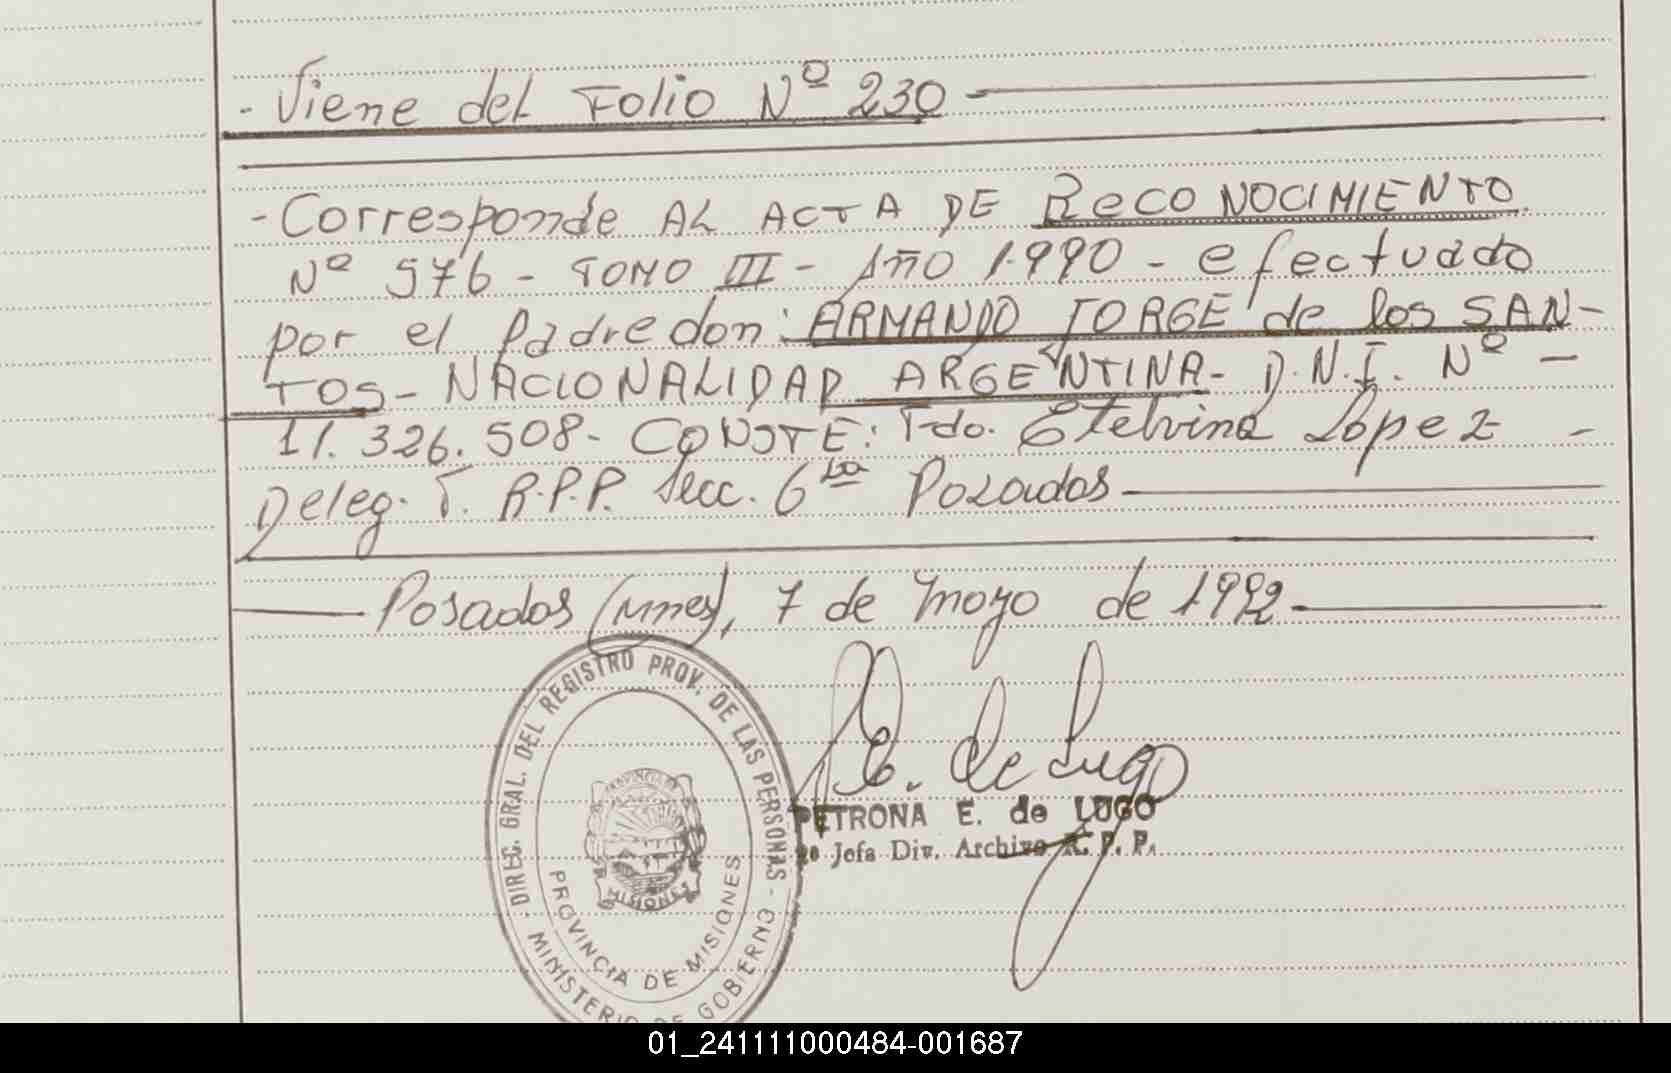 - Viene del Folio Nº 230 -
- Corresponde AL ACTA DE RecoNOCIMIENTO.
Nº 576 - TOMO III - Año 1.990 - efectuado
por el padre don: ARMANDO JORGE de los SAN-
TOS - NACIONALIDAD ARGENTINA - D.N.I. Nº -
11.326.508 - CONSTE: Fdo. Etelvina Lopez -
Deleg. T. R.P.P. Secc. 6ta Posadas
Posadas (Mnes), 7 de mayo de 1992 -
P.E. de Lugo
PETRONA E. de LUGO
Jefa Div. Archivo R. P. P.
- DIREC. GRAL. DEL REGISTRO PROV. DE LAS PERSONAS -
MINISTERIO DE GOBIERNO
PROVINCIA DE MISIONES
PROVINCIA
MISIONES
01_241111000484-001687